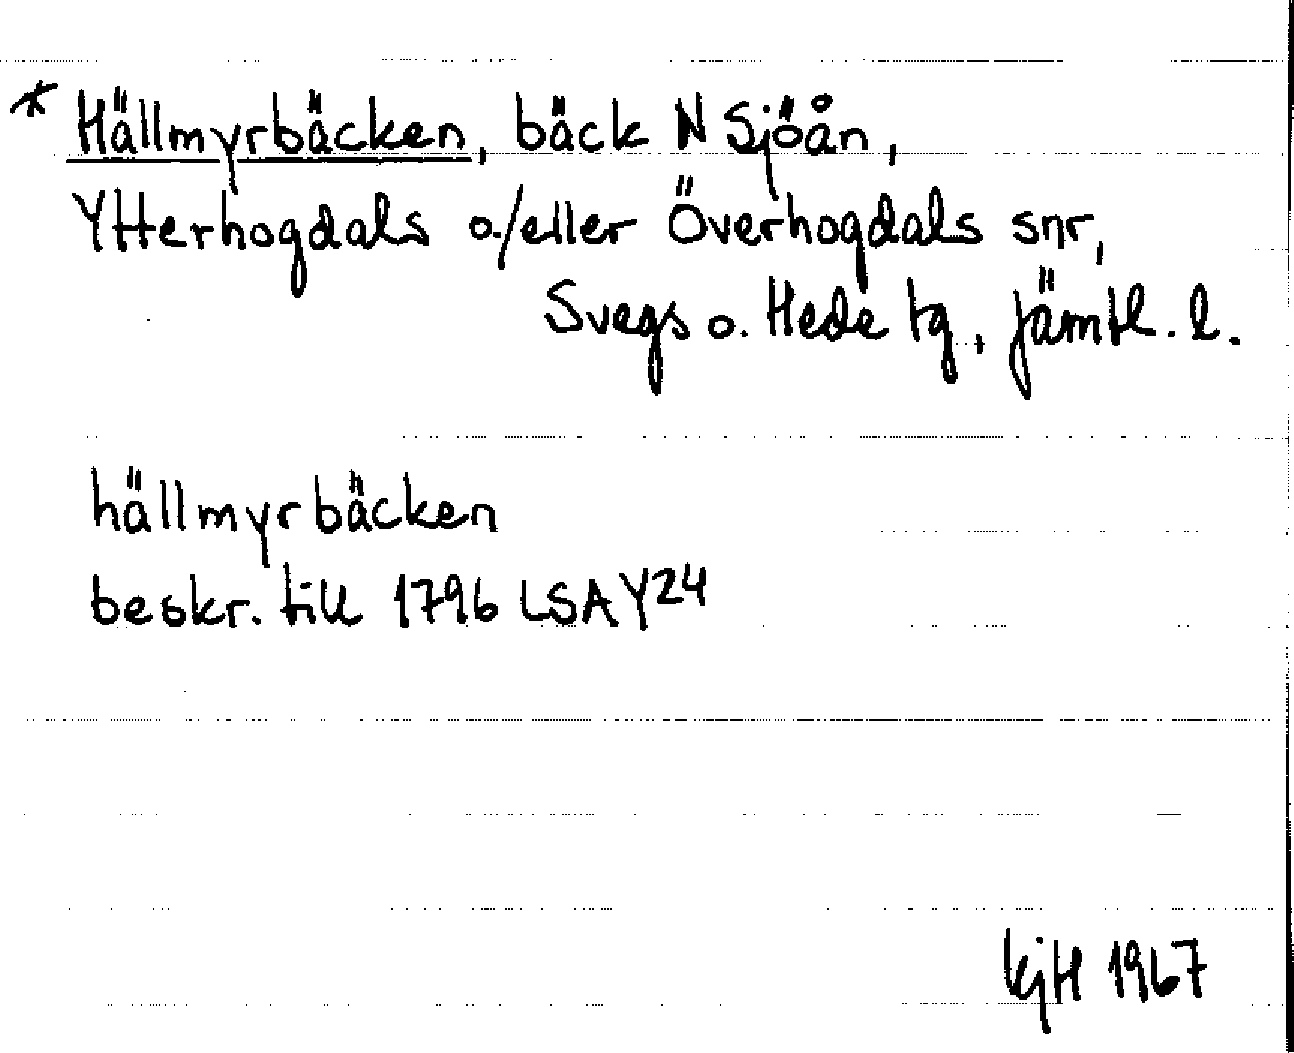 * Hällmyrbäcken, bäck N Sjöån,
Ytterhogdals o./eller Överhogdals snr,
Svegs o. Hede tg, Jämtl. l.
hällmyrbäcken
beskr. till 1796 LSA Y24
KjH 1967